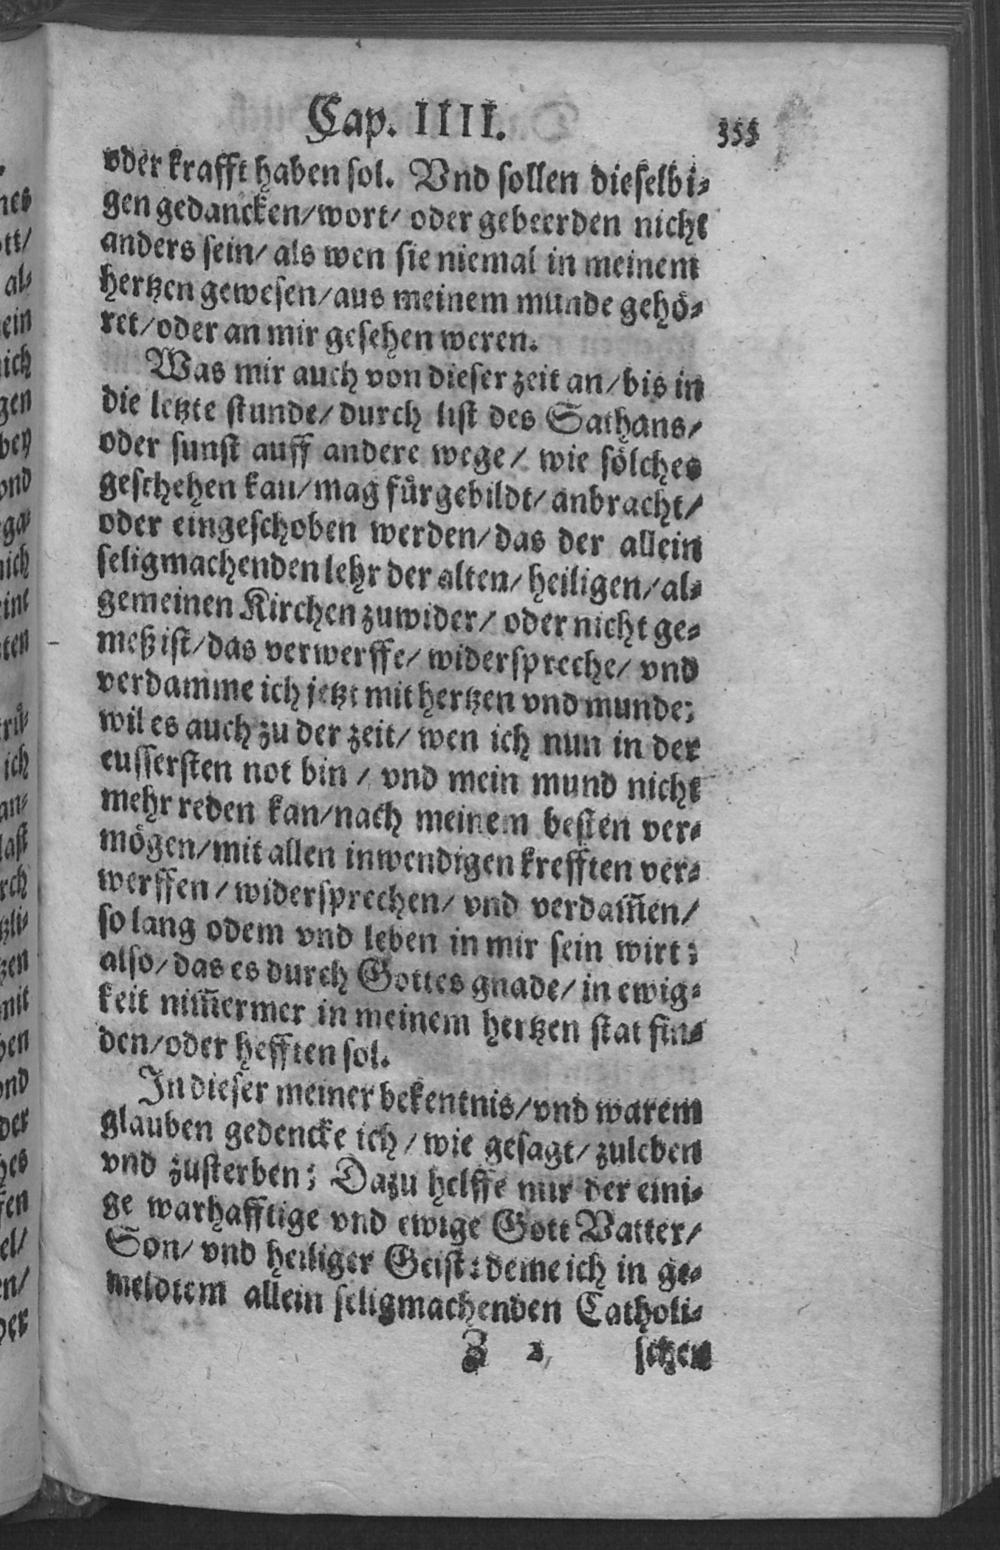 Cap. IIII. 355
oder krafft haben sol. Vnd sollen dieselbi⸗
gen gedancken/wort/ oder gebeerden nicht
anders sein/ als wen sie niemal in meinem
hertzen gewesen/aus meinem munde gehö⸗
ret/oder an mir gesehen weren.
Was mir auch von dieser zeit an/bis in
die letzte stunde/durch list des Sathans/
oder sunst auff andere wege/ wie sölches
geschehen kan/mag fürgebildt/anbracht/
oder eingeschoben werden/das der allein
seligmachenden lehr der alten/heiligen/al⸗
gemeinen Kirchen zuwider/ oder nicht ge⸗
meß ist/das verwerffe/widerspreche/ vnd
verdamme ich jetzt mit hertzen vnd munde:
wil es auch zu der zeit/ wen ich nun in der
eussersten not bin / vnd mein mund nicht
mehr reden kan/nach meinem besten ver⸗
mögen/mit allen inwendigen krefften ver⸗
werffen/widersprechen/ vnd verdam̃en/
so lang odem vnd leben in mir sein wirt:
also/das es durch Gottes gnade/in ewig⸗
keit nim̃ermer in meinem hertzen stat fin⸗
den/oder hefften sol.
In dieser meiner bekentnis/vnd warem
glauben gedencke ich/wie gesagt/zuleben
vnd zusterben: Dazu helffe mir der eini⸗
ge warhafftige vnd ewige Gott Vatter/
Son/ vnd heiliger Geist: deme ich in ge⸗
meldtem allein seligmachenden Catholi⸗
Z 2 schen